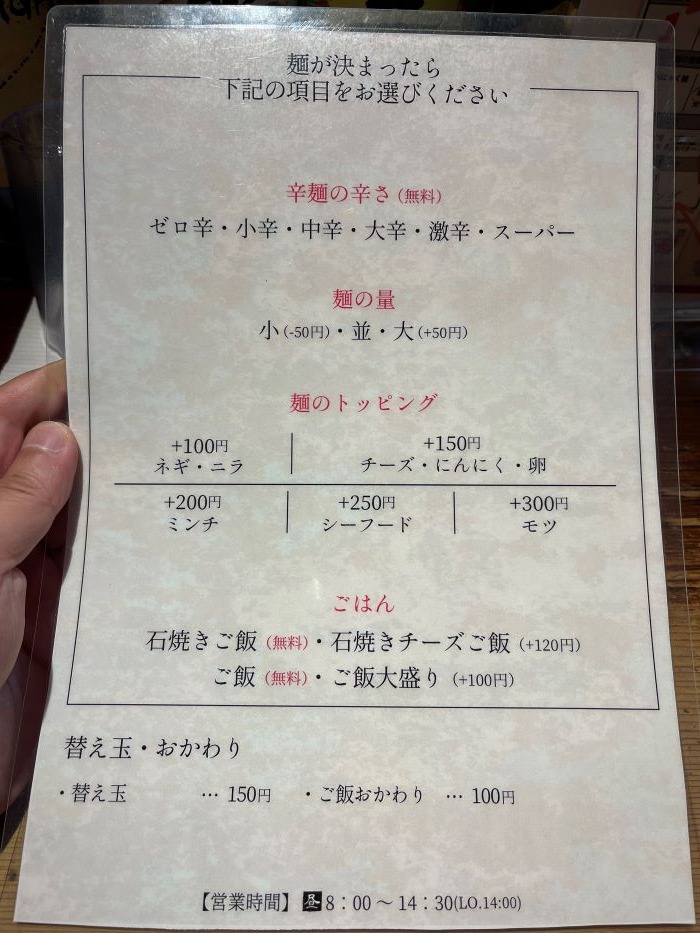 麺が決まったら
下記の項目をお選びください
辛麺の辛さ(無料)
ゼロ辛・小辛・中辛・大辛・激辛・スーパー
麺の量
小(-50円)・並・大(+50円)
麺のトッピング
+100円 +150円
ネギ・ニラ チーズ・にんにく・卵
+200円 +250円 +300円
ミンチ シーフード モツ
ごはん
石焼きご飯(無料)・石焼きチーズご飯(+120円)
ご飯(無料)・ご飯大盛り(+100円)
替え玉・おかわり
・替え玉 … 150円 ・ご飯おかわり … 100円
【営業時間】昼8：00～14：30(LO.14:00)